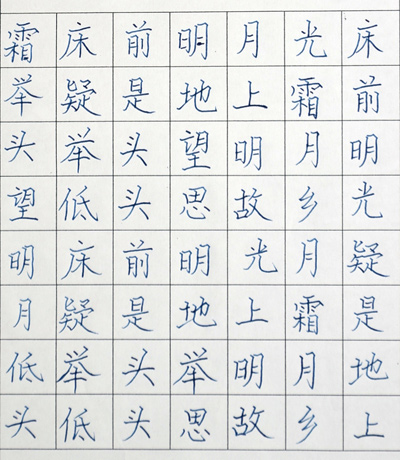 霜床前明月光床
举疑是地上霜前
头举头望明月明
望低头思故乡光
明床前明光月疑
月疑是地上霜是
低举头举明月地
头低头思故乡上